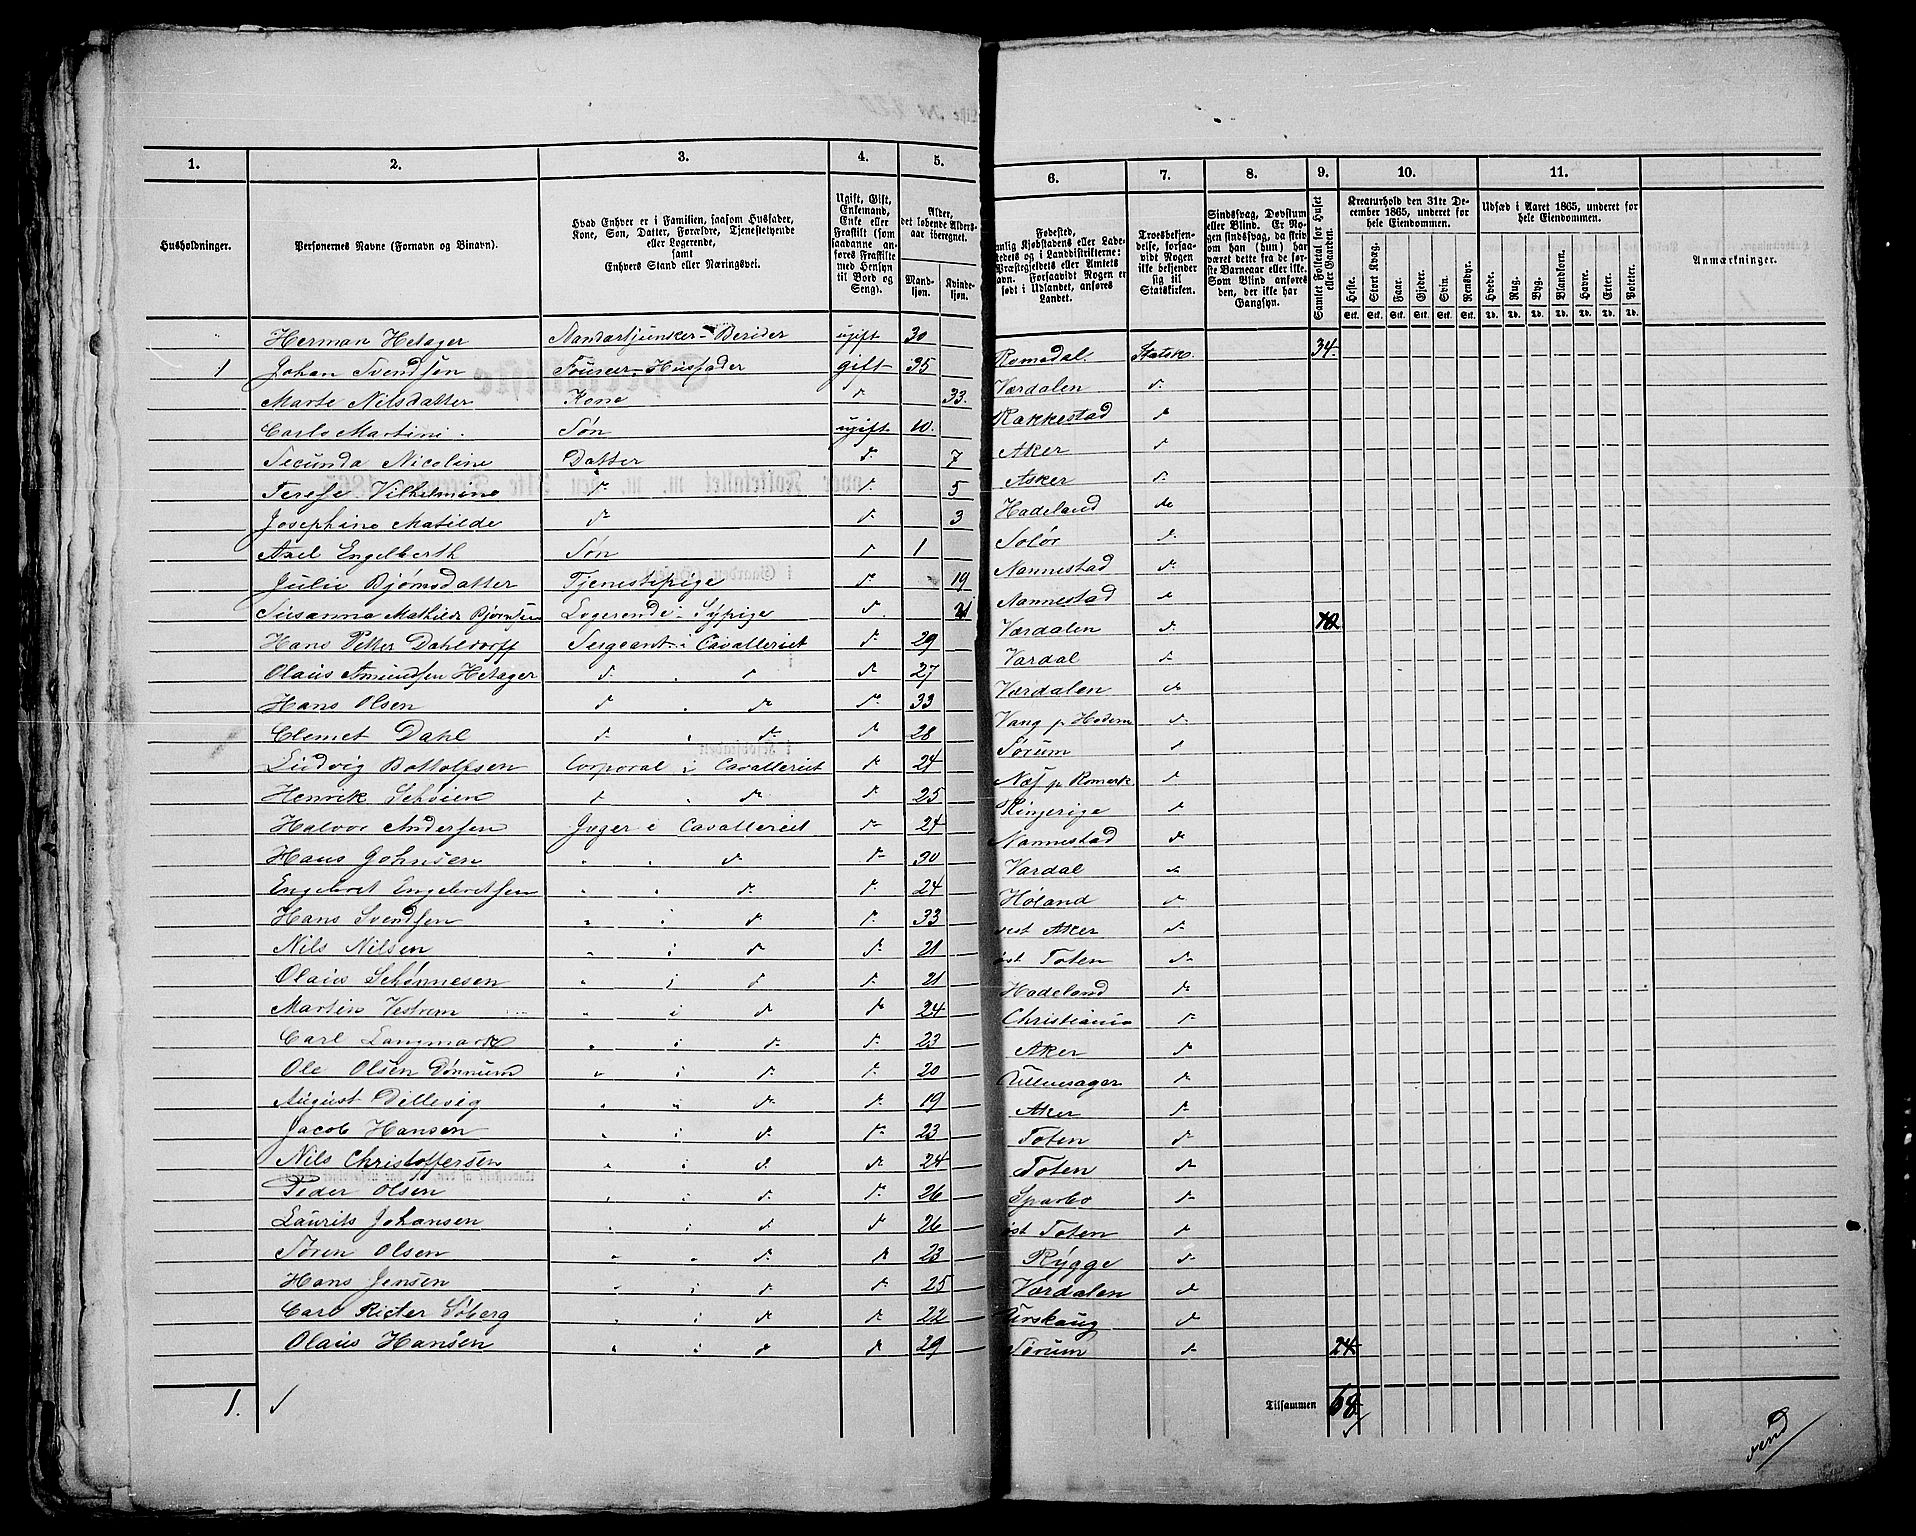 1. 2. 3. 4. 5. 6. 7. 8. 9. 10. 11.
Husholdninger. Personernes Navne (Fornavn og Binavn). Hvad Enhver er i Familien, saasom Husfader, Kone, Søn, Datter, Forældre, Tjenestetyende eller Logerende, samt Enhvers Stand eller Næringsvei. Ugift, Gift, Enkemand, Enke eller Fraskilt (som saadanne anføres Fraskilte med Hensyn til Bord og Seng). Alder, det løbende Aldersaar iberegnet. Mandkjøn. Kvindekjøn.
Fødested, Troesbekjendelse, forsaavidt Nogen ikke bekjender sig til Statskirken. Sindssvag, Døvstum eller Blind. Samlet Folketal for Huset eller Gaarden. Kreaturhold den 31te December 1865, underet for hele Eiendommen. Udsæd i Aaret 1865, underet for hele Eiendommen. Anmærkninger.
Heste. Stort Kvæg. Faar. Gjeder. Svin. Rensdyr. Hvede. Rug. Byg. Blandkorn. Havre. Erter. Poteter.
Herman Hetager Berider ugift 30 Romedal. Statsk. 34
1 Johan Svendsen Husfader gift 35 Værdalen d
Marte Nilsdatter Kone d 33. Rakkestad d
Carl Martini Søn ugift 10. Aker d
Secunda Nicoline Datter d 7 Asker d
Terese Vilhelmine d d 5 Hadeland do
Josephine Matilde d d 3 Solør d
Axel Engelberth Søn d 1 Nannestad d
Julie Bjørnsdatter Tjenestepige d 19 Nannestad d
Susanna Mathilde Bjørnsen Logerende Sypige d 21 Værdalen d 10
Hans Petter Dahldorff Sergeant i Cavalleriet d 29 Vardal d
Olaus Amundsen Hetager d d d 27 Værdalen d
Hans Olsen d d d 33 Vang p. Hedem d
Clemet Dahl d d d 28 Sørum d
Ludvig Bottolfsen Corporal i Cavalleriet d 24 Næs p. Romerk d
Henrik Schøien d d d 25 Ringerige d
Halvor Andersen Jæger i Cavalleriet d 24 Nannestad d
Hans Johnsen " " d d 30 Vardal d
Engebret Engebretsen " " d d 24 Høland d
Hans Svendsen " i d d 33 vest Aker d
Nils Nilsen " i d d 21 øst Toten d
Olaus Schønnesen " i d d 21 Hadeland d
Martin Vestrum " i d d 24 Christiania d
Carl Langmark " i d d 23 Aker d
Ole Olsen Dønnum " i d d 20 Ullensager d
August Dillevig " " d d 19 Aker d
Jacob Hansen " i d d 23 Toten d
Nils Christoffersen " i d d 24 Toten d
Peder Olsen " i d d 26 Sparbo d
Laurits Johansen " i d d 26 øst Toten d
Søren Olsen " " d d 23 Rygge d
Hans Jensen " i d d 25 Værdalen d
Carl Ricter Søberg " i d d 22 Urskoug d
Olaus Hansen " i d d 29 Sørum d 24
1. Tilsammen 68
vend